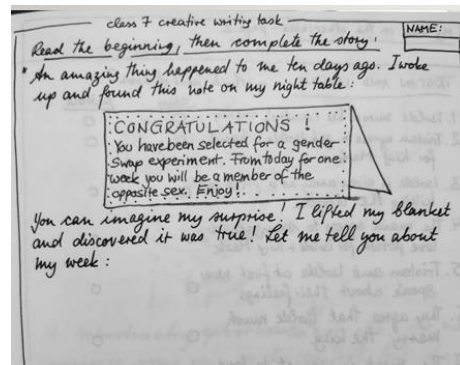 class 7 creative writing task
NAME:
Read the beginning, then complete the story!
"An amazing thing happened to me ten days ago. I woke
up and found this note on my night table:
CONGRATULATIONS !
You have been selected for a gender
swap experiment. From today for one
week you will be a member of the
opposite sex. Enjoy!
You can imagine my surprise! I lifted my blanket
and discovered it was true! Let me tell you about
my week :